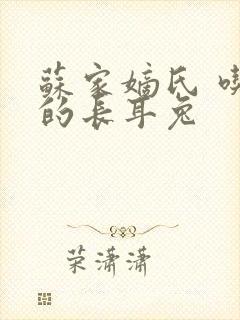 蘇家嫡氏 喫
的長耳兔
荣潇潇